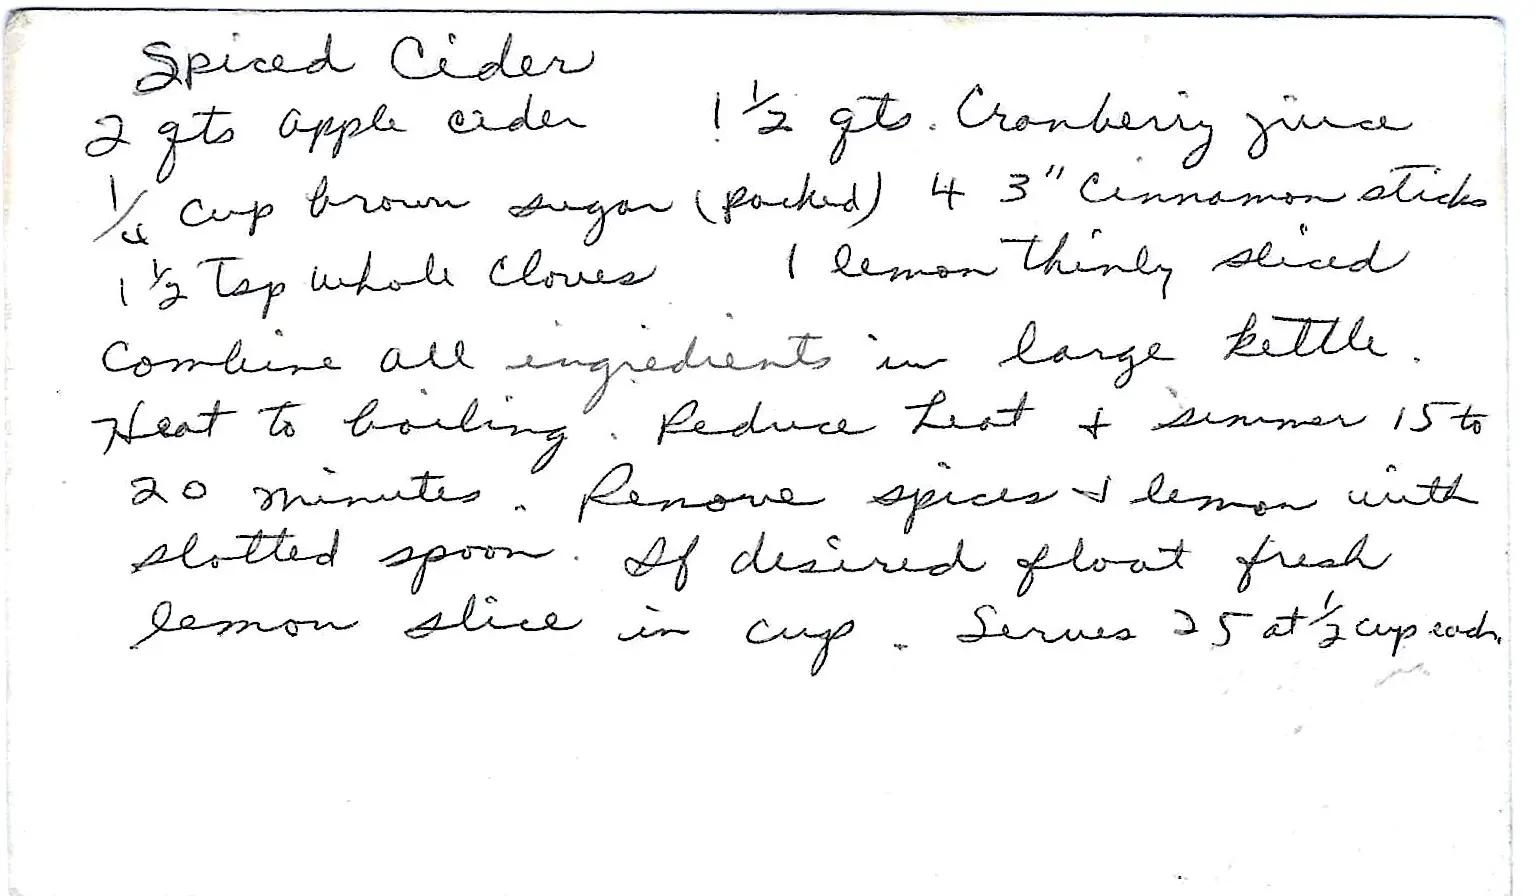 Spiced Cider
2 qts apple cider 1 1/2 qts. Cranberry juice
1/4 cup brown sugar (packed) 4 3" Cinnamon sticks
1 1/2 Tsp whole Cloves 1 lemon thinly sliced
Combine all ingredients in large kettle.
Heat to boiling. Reduce heat & simmer 15 to
20 minutes. Remove spices & lemon with
slotted spoon. If desired float fresh
lemon slice in cup. Serves 25 at 1/2 cup each.